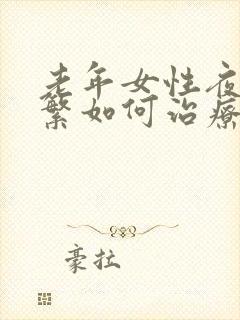 老年女性夜
繁如何治疗
豪拉